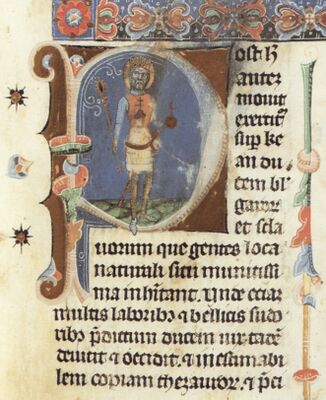 ost h
autem
mouit
exercitū
sup ke
an du
cem bl
garor
et scla
uorum que gentes loca
naturali situ munitissi
ma inhitant. Unde eciaꝫ
multis laboribꝫ ⁊ bellicis sudo
ribꝫ p̄dictum ducem uix tandē
deuicit ⁊ occidit. ⁊ inestimabi
lem copiam thezauror. ⁊ p̄ci